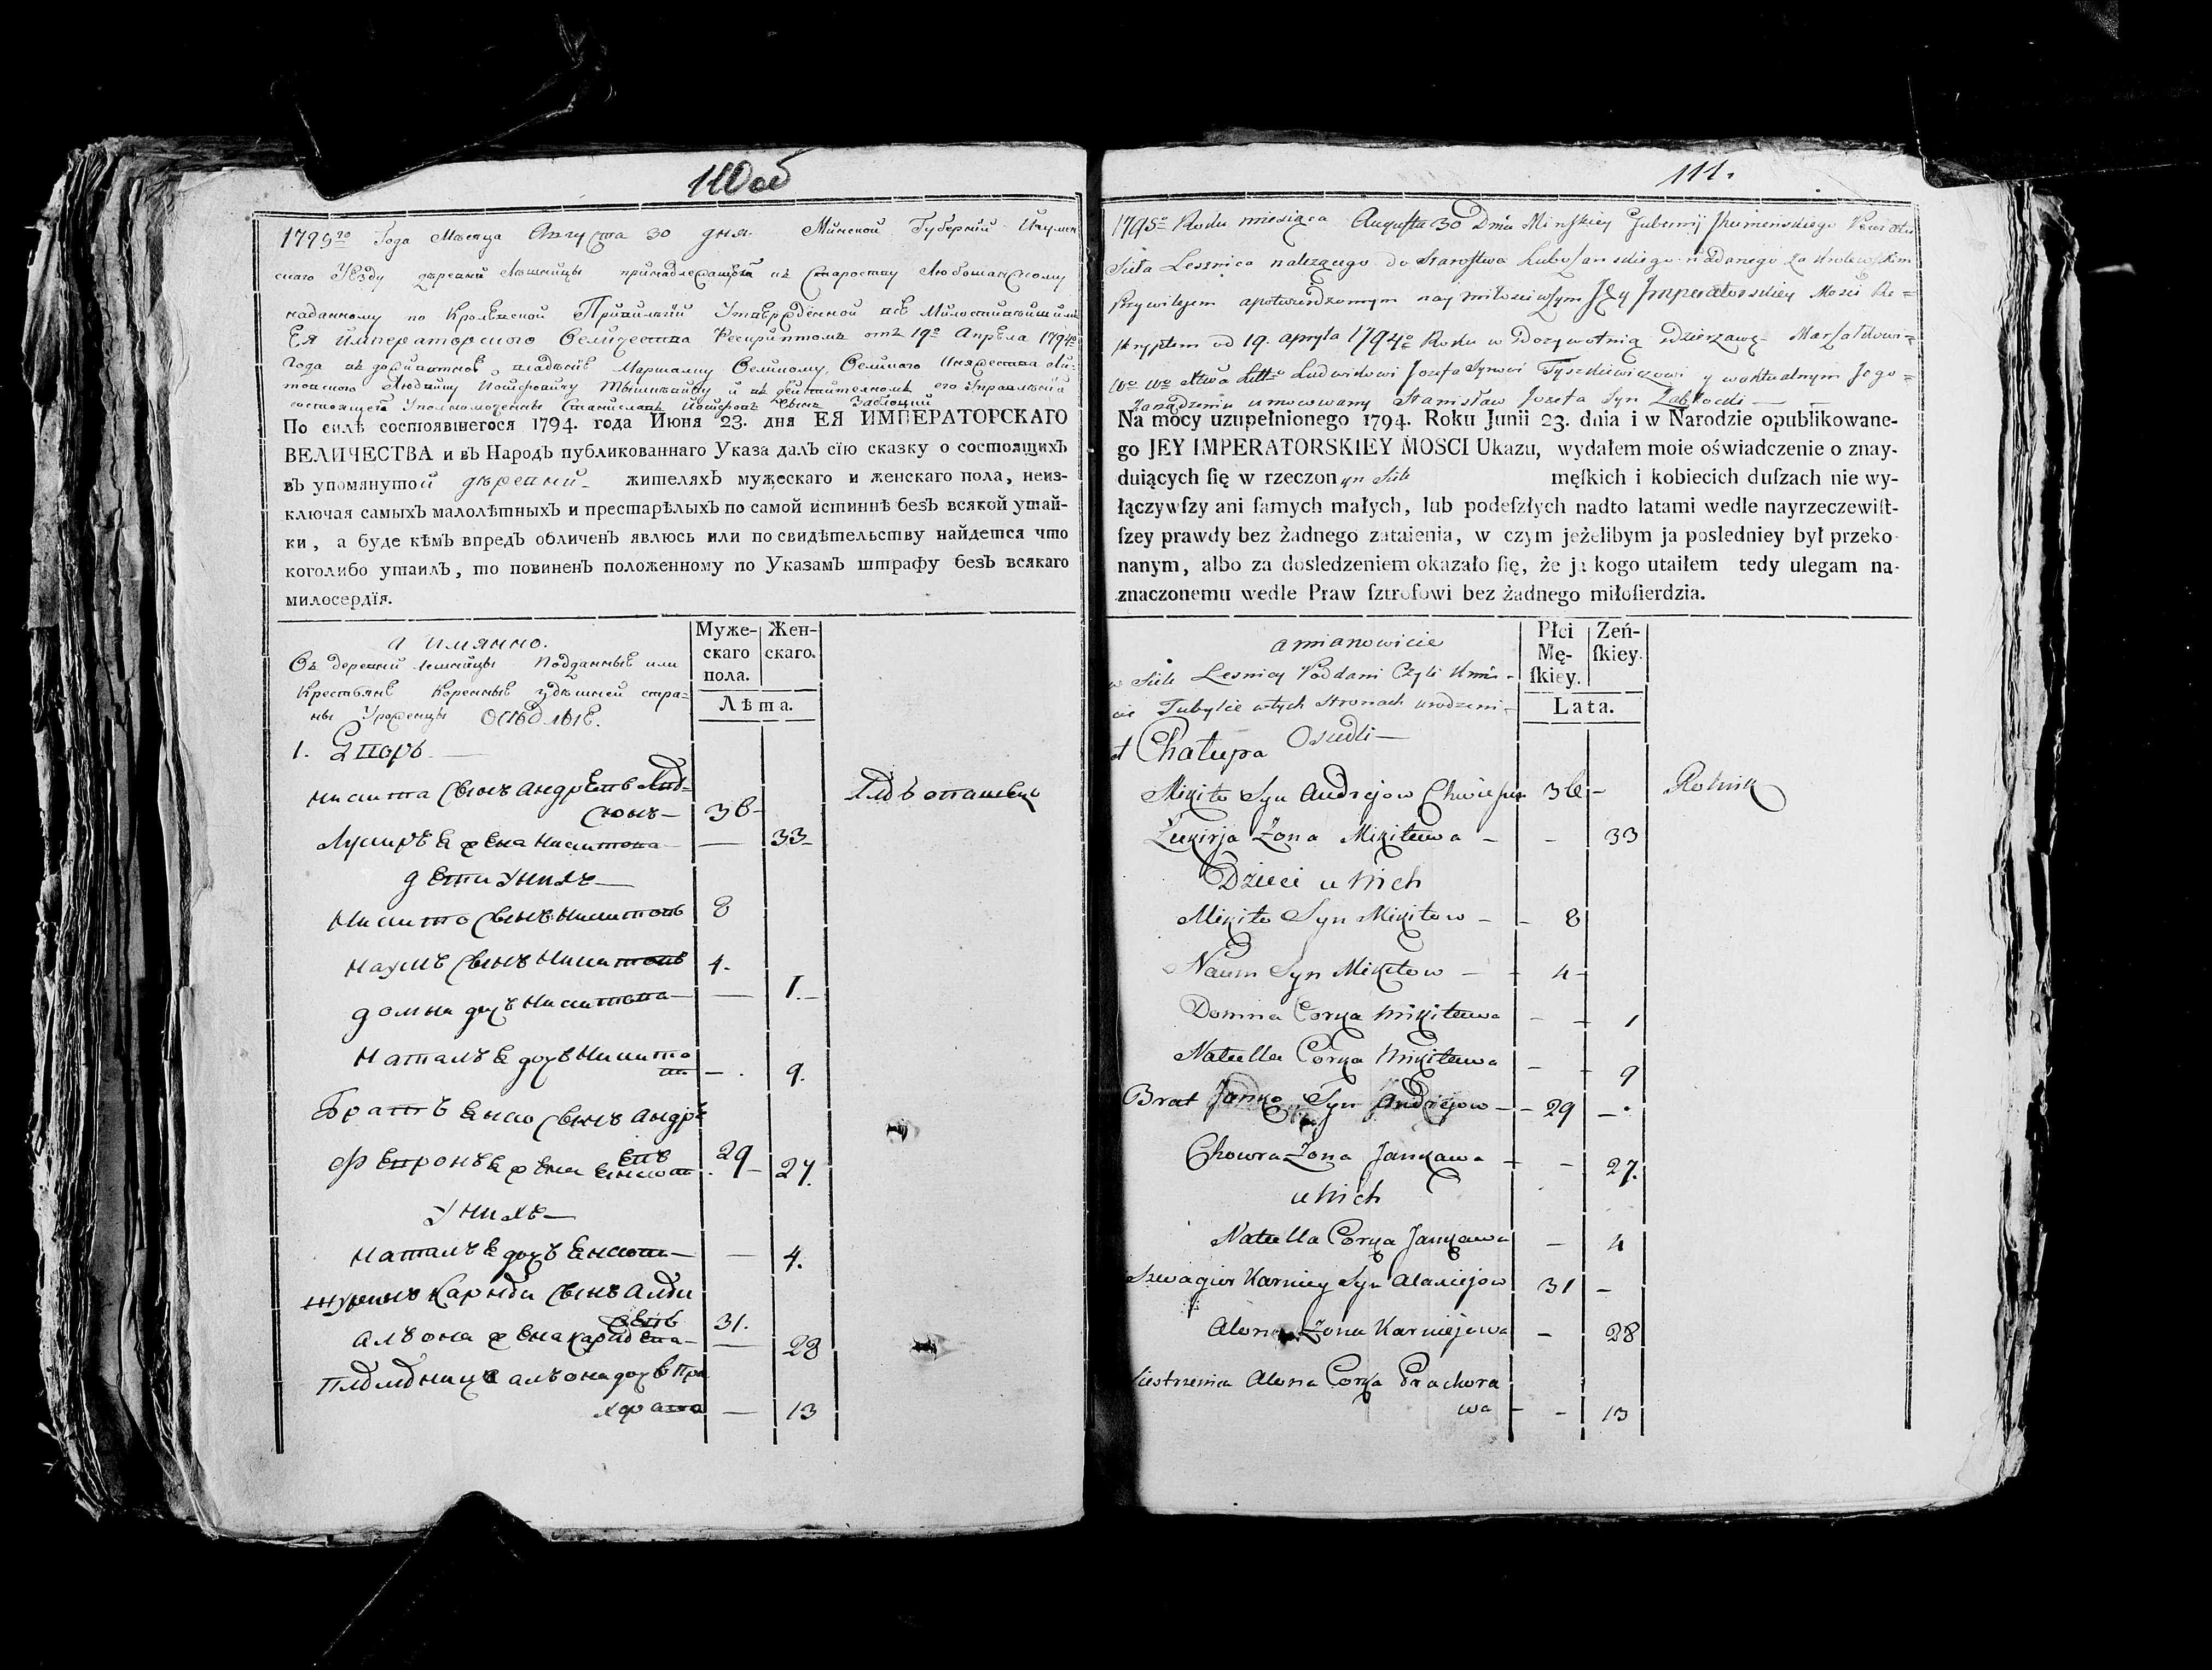 110 об
1795го Года Месяца Августа 30 дня. Минской Губернии Игумен
скаго Уезду деревни Лешницы принадлежащей къ Староству Любошанскому
наданному по Кролевской Привилегии Утвержденной все Милостивейшимъ
Ея Императорского Величества Рескриптомъ отъ 19го Апреля 1794го
Года въ владение Маршалку Великому, Великого Княжества Ли-
товского Людвику Иосифовичу Тышкевичу и въ действителномъ его Управлении
состоящей Уполномоченны Станиславъ Иосифовъ Сынъ Заблоцкий
По силѣ состоявшегося 1794. года Июня 23. дня ЕЯ ИМПЕРАТОРСКАГО
ВЕЛИЧЕСТВА и въ Народъ публикованнаго Указа далъ сїю сказку о состоящихъ
въ упомянутой деревни жителяхъ мужескаго и женскаго пола, неиз-
ключая самыхъ малолѣтныхъ и престарѣлыхъ по самой истиннѣ безъ всякой утай-
ки, а буде кѣмъ впредъ обличенъ явлюсь или по свидѣтельству найдется что
коголибо утаилъ, то повиненъ положенному по Указамъ штрафу безъ всякаго
милосердїя.
а имянно.
Муже-
скаго
пола.
Жен-
скаго.
Лѣта.
Въ деревни Лешницы Подданные или
Крестьяне Коренные здешней стра-
ны Уроженцы Оседлые.
1. Дворъ
Микита сынъ Андреевъ
36
33
дети У нихъ
Микито сынъ Микитовъ 8
Наумъ сынъ Микитовъ 4.
домна дочь Микитова 1.
Наталья дочь Микито
ва 9.
Братъ Енко сынъ Андре
евъ 29
жена Енкова 27.
У нихъ
Наталья дочь Енкова 4.
31.
Алена жена 28
Алена дочь Про
хорова 13
111.
1795o Roku miesiąca Augusta 30 Dnia Minskiey Gubernij Ihumeńskiego Powiatu
Sioła Lesznica należącego do Starostwa Luboszanskiego nadanego za Krolewskim
Przywilejem a potwierdzonym nay miłosciwszym JEy Jmperatorskiey Mosci Re=
skryptem od 19. apryla 1794o Roku w Dozywotnią Dzierzawę Marszałkowi
Wo Wo Xtwa Litto Ludwikowi Jozefa Synowi Tyszkiewiczowi y w aktualnym Jego=
Zarządzeniu umocowany Stanisław Jozefa Syn Zabłocki
Na mocy uzupełnionego 1794. Roku Junii 23. dnia i w Narodzie opublikowane-
go JEY IMPERATORSKIEY MOSCI Ukazu, wydałem moie oświadczenie o znay-
duiących ſię w rzeczonym Siele męſkich i kobiecich duſzach nie wy-
łączywſzy ani ſamych małych, lub podeſzłych nadto latami wedle nayrzeczewiſt-
ſzey prawdy bez żadnego zataienia, w czym jeżelibym ja posledniey był przeko-
nanym, albo za dosledzeniem okazało ſię, że ja kogo utaiłem tedy ulegam na-
znaczonemu wedle Praw ſztrofowi bez żadnego miłoſierdzia.
a mianowicie
Płci
Mę-
ſkiey.
Zeń-
ſkiey.
Lata.
w Siele Lesnicy Poddani Czyli Kmi-
cie Tubylcie w tych Stronach urodzeni
Osiedli
Chałupa
Mikito Syn Andrejow 36 Rolnik
Zona Mikitowa 33
Dzieci u Nich
Mikito Syn Mikitow 8
Naum Syn Mikitow 4
Domna Corka Mikitowa 1
Natella Corka Mikitowa 9
Brat Janko Syn Andrejow 29
Chowra Zona Jankowa 27.
u Nich
Natella Corka Jankowa 4
Szwagier Karniey Syn Alaxiejow 31
Alona Zona Karniejowa 28
Siestrzenica Alona Corka Prachora
wa 13